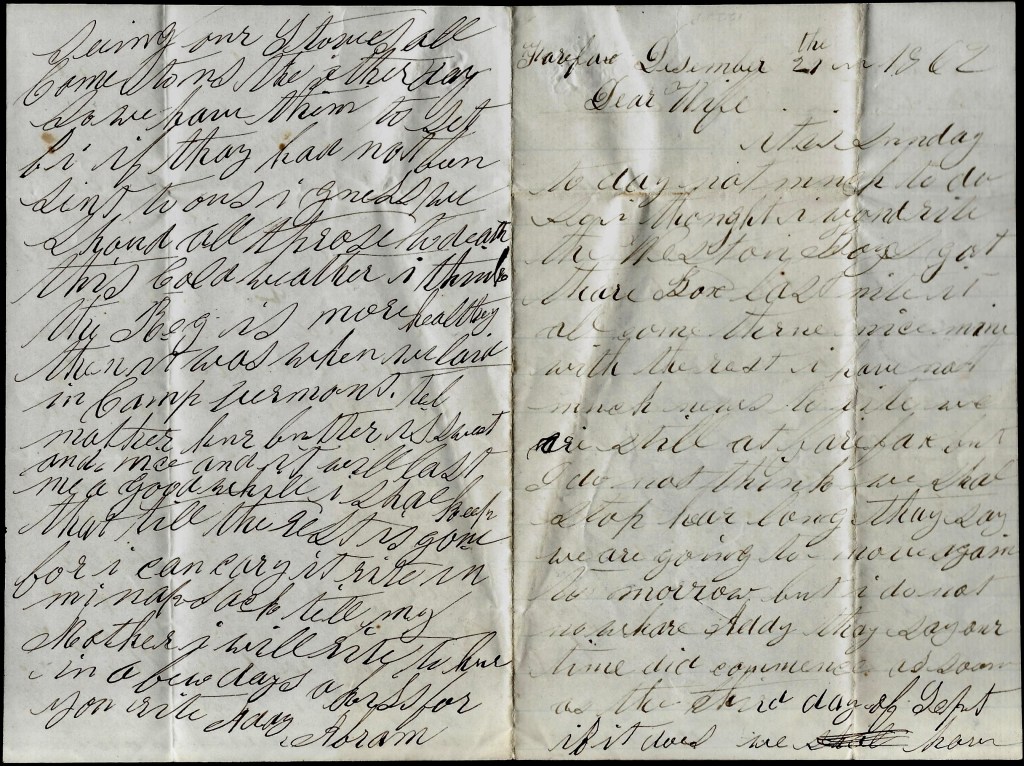 Fairfax Desember the 21 in 1862
Dear Wife
it is Sunday
to day not much to do
so i thought i wood rite
the Weston Boys got
thare Box last nite it
all come threw nice mine
with the rest i have not
much news to rite we
are still at fairfax but
I do not think we shal
stop hear long thay say
we are going to move again
to morrow but i do not
no whare Addy thay say our
time did commence as soon
as the third day of Sept
if it does we have
being our Stoves all
Come to ns the other day
so we have them to Set
bi if thay had not ben
sent to ous i gness we
shoud all throse to death
this Cold weather i think
the Reg is more healthy
then it was when we laid
in Camp vermont. tel
mother hur butter is sweet
and nice and it will last
me a good while i shal keep
that till the rest is gone
for i can cary it rite in
mi napsack tell my
Mother i will rite to hur
in a few days a kiss for
you rite Addy
Abram